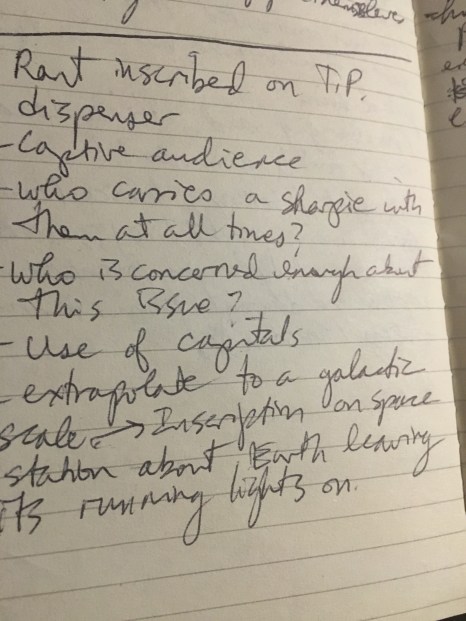 themselves
Rant inscribed on T.P.
dispenser
- Captive audience
- who carries a sharpie with
them at all times?
- who is concerned enough about
this issue?
- Use of capitals
- extrapolate to a galactic
scale. → Inscription on space
station about Earth leaving
its running lights on.